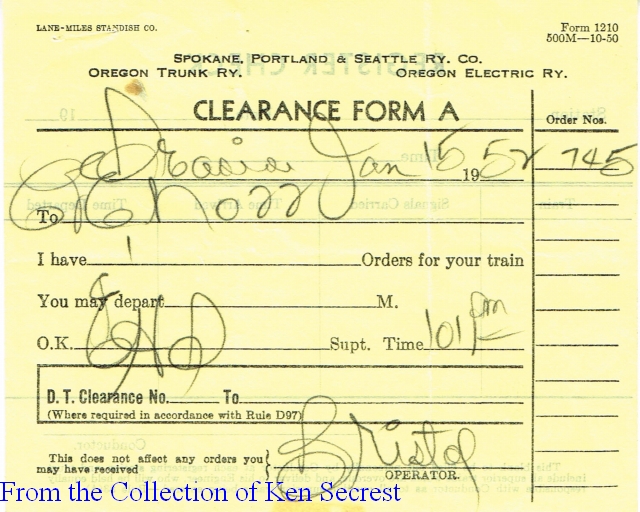 LANE-MILES STANDISH CO.
Form 1210
500M—10-50
SPOKANE, PORTLAND & SEATTLE RY. CO.
OREGON TRUNK RY. OREGON ELECTRIC RY.
CLEARANCE FORM A
Order Nos.
Jan 15 1952 745
To C&E
I have 1 Orders for your train
You may depart M.
O.K. Supt. Time 101 PM
D. T. Clearance No. To
(Where required in accordance with Rule D97)
This does not affect any orders you
may have received
Bristol
OPERATOR.
From the Collection of Ken Secrest